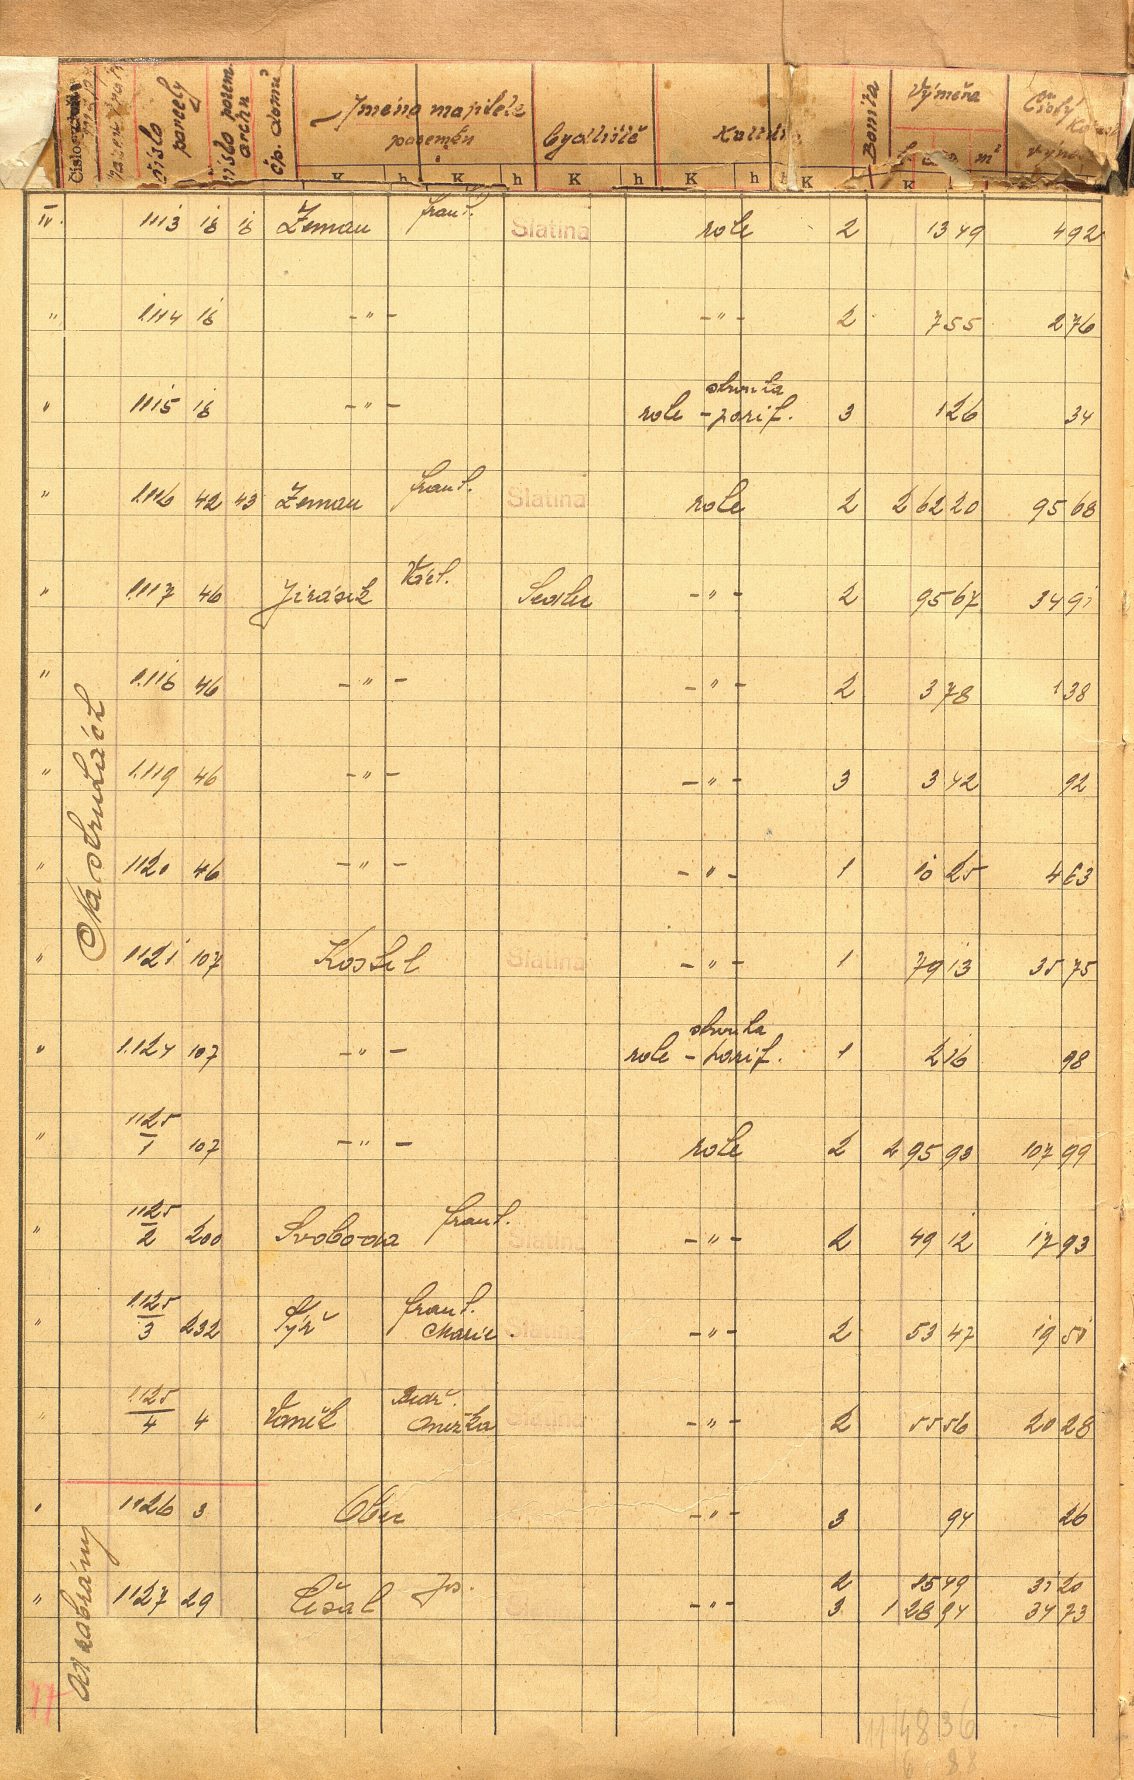 číslo parcely číslo pozem. archu čp. domu Jméno majitele pozemku bydliště Kultura Bonita Výměra m² Čistý
K h K h K h K h K K
IV. 1113 18 18 Zeman Frant. Slatina role 2 13 49 4 92
" 1114 18 - " - - " - 2 7 55 2 76
" 1115 18 - " - role - parif. 3 1 26 34
" 1116 42 43 Zeman Frant. Slatina role 2 2 62 20 95 68
" 1117 46 Jirásek Václ. - " - 2 95 67 34 91
" 1118 46 - " - - " - 2 3 78 1 38
" 1119 46 - " - - " - 3 3 42 92
" 1120 46 - " - - " - 1 10 25 4 63
" 1121 107 Kostel Slatina - " - 1 79 13 35 75
" 1124 107 - " - role - parif. 1 2 16 98
" 1125/1 107 - " - role 2 2 95 93 107 99
" 1125/2 200 Svoboda Frant. Slatina - " - 2 49 12 17 93
" 1125/3 232 Týř Frant. Marie. Slatina - " - 2 53 47 19 51
" 1125/4 4 Vaněk Bedř. Anežka Slatina - " - 2 55 56 20 28
" 1126 3 Obec - " - 3 94 26
" 1127 29 Čísal Jos. - " - 2 85 49 31 20
3 1 28 94 34 73